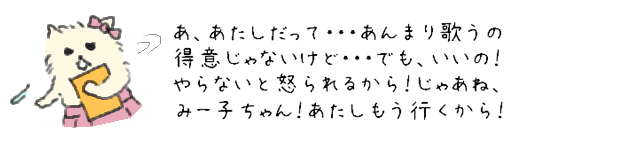 あ、あたしだって・・・あんまり歌うの
得意じゃないけど・・・でも、いいの!
やらないと怒られるから!じゃあね、
みー子ちゃん!あたしもう行くから!